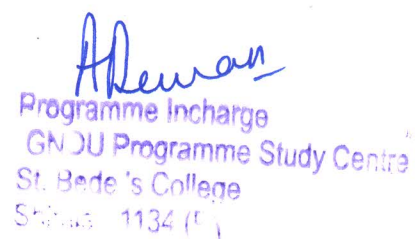 Programme Incharge
GNOU Programme Study Centre
St. Bede's College
1134